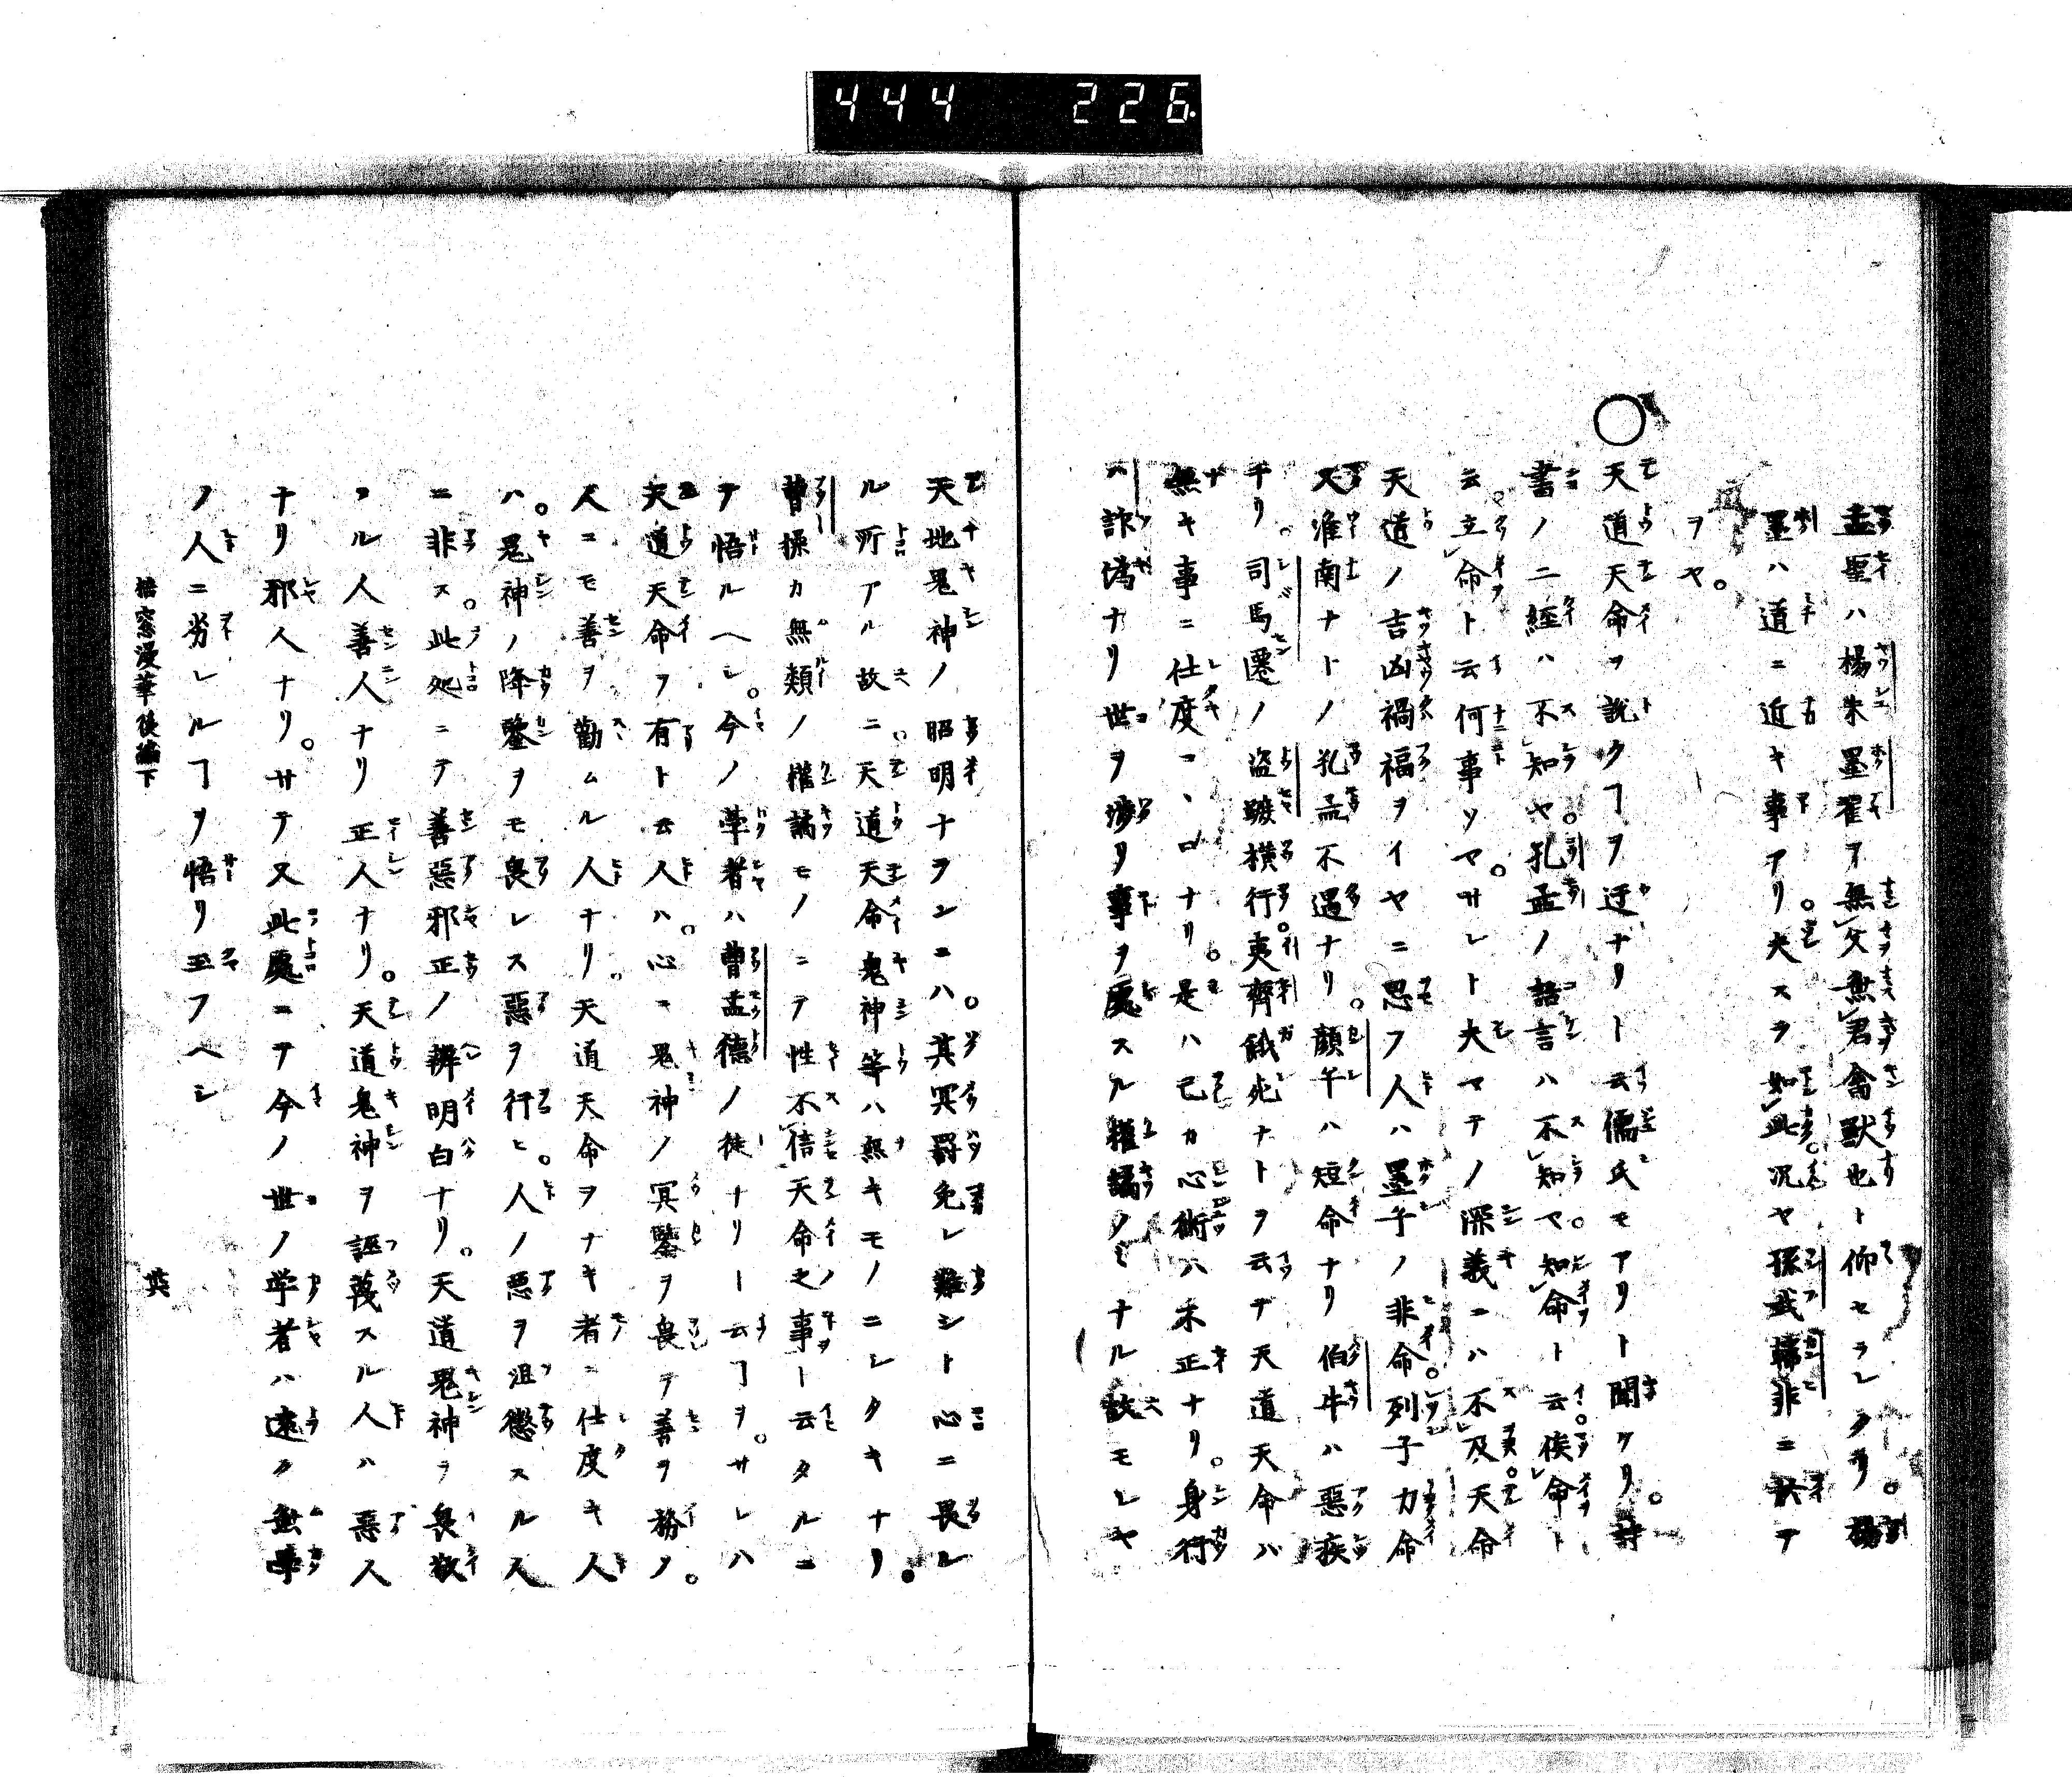 444 226.
孟聖ハ楊朱墨翟ヲ無父無君禽獣也ト仰セラレタリ。楊
墨ハ道ニ近キ事アリ。夫スヲ如此。况ヤ孫武韓非ニ於テ
ヲヤ。
○天道天命ヲ説クヿヲ迂ナリト云儒氏モアリト聞ケリ。詩
書ノ二経ハ不知ヤ。孔孟ノ語言ハ不知ヤ。知命ト云。俟命ト
云。立命ト云何事ソマ。サレト夫マテノ深義ニハ不及。天命
天道ノ吉凶禍福ヲイヤニ思フ人ハ墨子ノ非命。列子力命
又淮南ナトノ孔孟不遇ナリ。顔子ハ短命ナリ伯牛ハ惡疾
ナリ。司馬遷ノ盗蹠横行。夷齊餓死ナトヲ云テ天道天命ハ
無キ事ニ仕度コヽロナリ。是ハ己カ心術ハ不正ナリ。身行
ハ詐偽ナリ世ヲ渉タ事ヲ處スル權譎ノミナル故モシヤ
天地鬼神ノ昭明ナランニハ。其冥罸免レ難シト心ニ畏レ
ル所アル故ニ。天道天命鬼神等ハ無キモノニシタキナリ。
曹操カ無類ノ權譎モノニテ性不信天命之事ト云タルニ
テ悟ルヘシ。今ノ學者ハ曹孟德ノ徒ナリト云ヿヲ。サレハ
天道天命ヲ有ト云人ハ。心ニ鬼神ノ冥鑒ヲ畏テ善ヲ務ノ。
人ニモ善ヲ勸ムル人ナリ。天道天命ヲナキ者ニ仕度キ人
ハ。鬼神ノ降鑒ヲモ畏レス惡ヲ行ヒ。人ノ惡ヲ沮懲スル人
ニ非ス。此処ニテ善惡邪正ノ辨明白ナリ。天道鬼神ヲ畏敬
スル人善人ナリ正人ナリ。天道鬼神ヲ誣蔑スル人ハ惡人
ナリ邪人ナリ。サテ又此處ニテ今ノ世ノ学者ハ遠ク無學
ノ人ニ劣レルヿヲ悟リ玉フヘシ
梧窓漫筆後編下